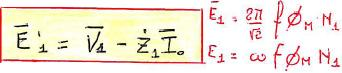 Ē'₁ = V̄₁ - Ż₁ Ī₀
Ē₁ = 2π/√2 f ϕ_M · N₁
E₁ = ω f ϕ_M N₁